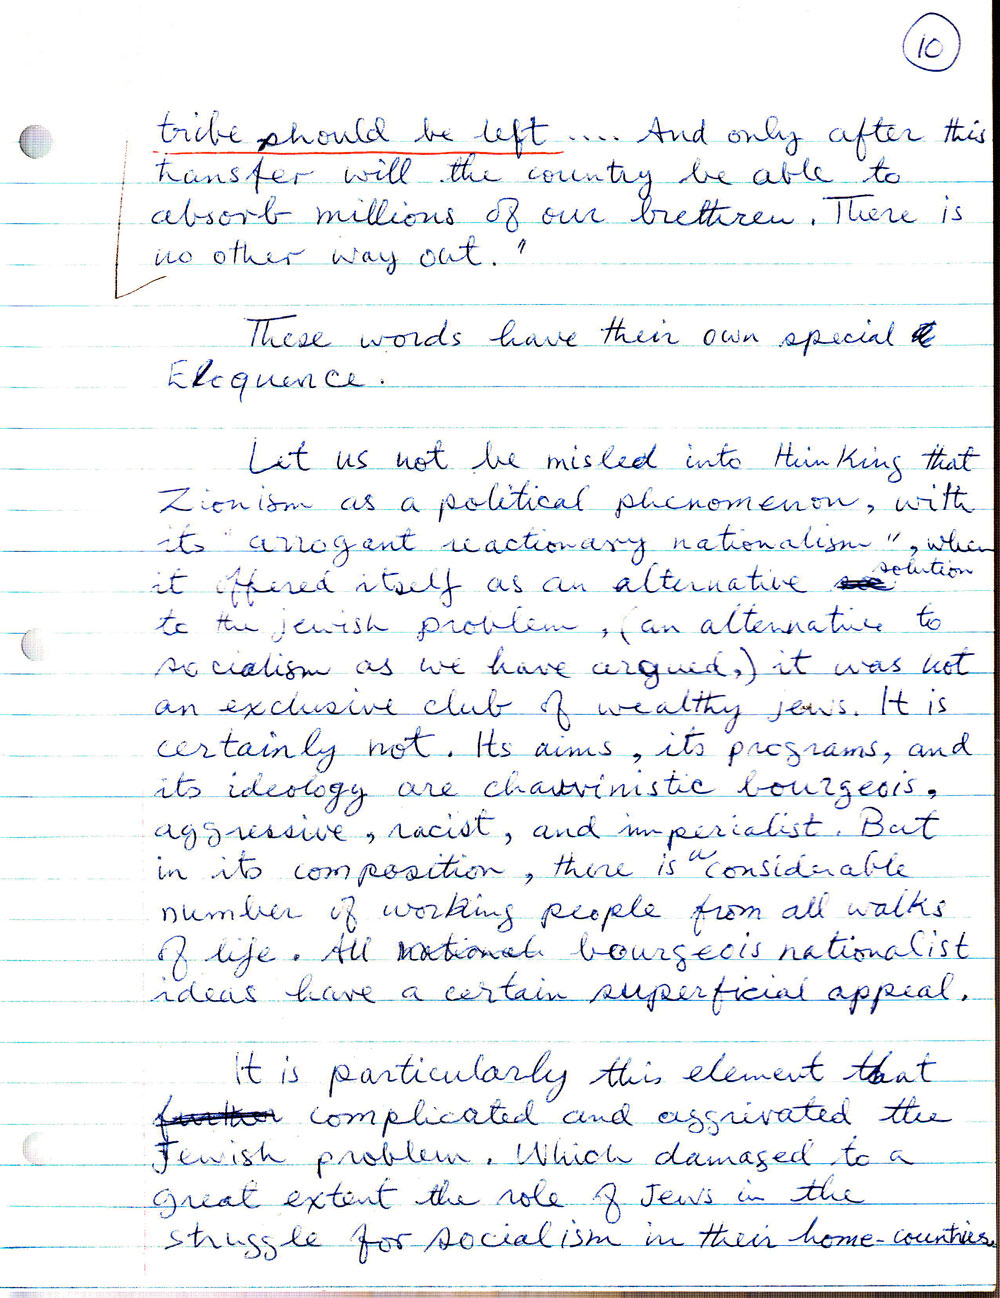 10
tribe should be left .... And only after this
transfer will the country be able to
absorb millions of our brethren. There is
no other way out."
These words have their own special
Eloquence.
Let us not be misled into thinking that
Zionism as a political phenomenon, with
its "arrogant reactionary nationalism", when
it offered itself as an alternative solution
to the jewish problem, (an alternative to
socialism as we have argued,) it was not
an exclusive club of wealthy jews. It is
certainly not. Its aims, its programs, and
its ideology are chauvinistic bourgeois,
aggressive, racist, and imperialist. But
in its composition, there is a considerable
number of working people from all walks
of life. All bourgeois nationalist
ideas have a certain superficial appeal.
It is particularly this element that
further complicated and aggrivated the
Jewish problem. Which damaged to a
great extent the role of Jews in the
struggle for socialism in their home-countries.